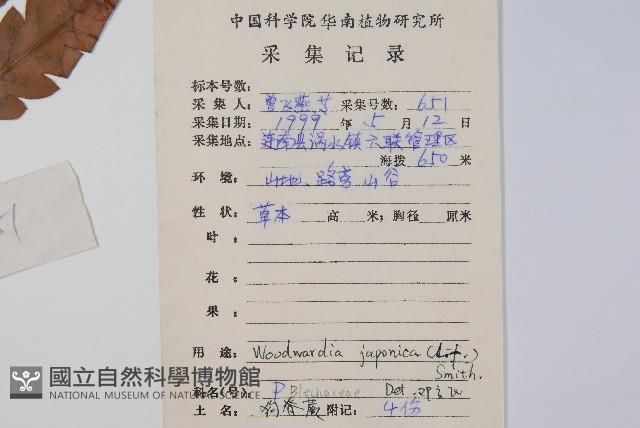 中国科学院华南植物研究所
采集记录
标本号数:
采集人: 曾飞燕 采集号数: 651
采集日期: 1999 年 5 月 12 日
采集地点: 连南县涡水镇六联管理区
海拨 650 米
环境: 山地、路旁 山谷
性状: 草本 高 米; 胸径 厘米
叶:
花:
果:
用途: Woodwardia japonica (L.f.)
Smith.
科名(号): P Blechnaceae Det.
土名: 狗脊蕨 附记: 4份
國立自然科學博物館
NATIONAL MUSEUM OF NATURAL SCIENCE